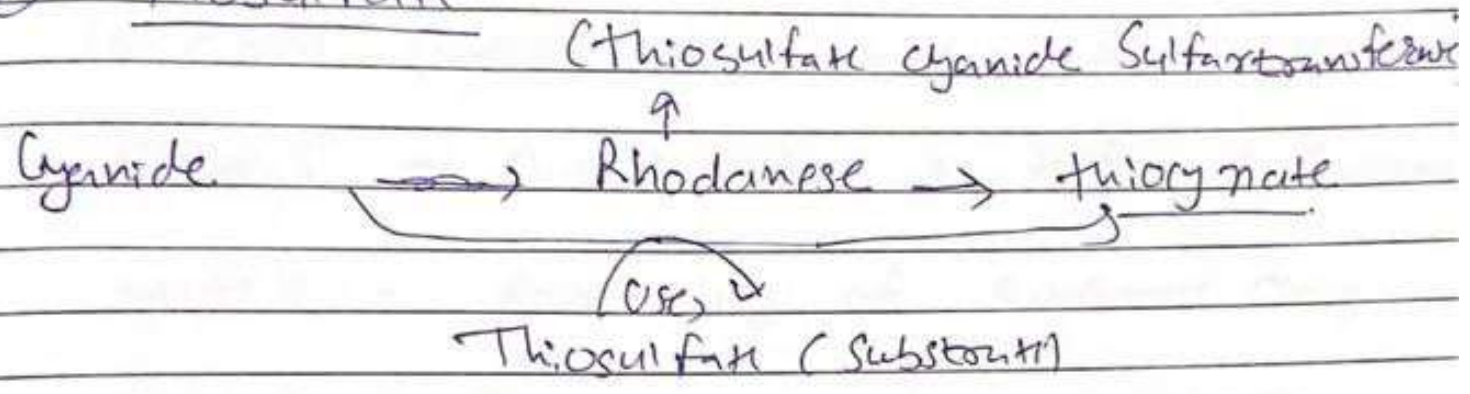 (thiosulfate cyanide Sulfartransferase
Cyanide → Rhodanese → thiocynate
(Use)
Thiosulfate (Substrate)